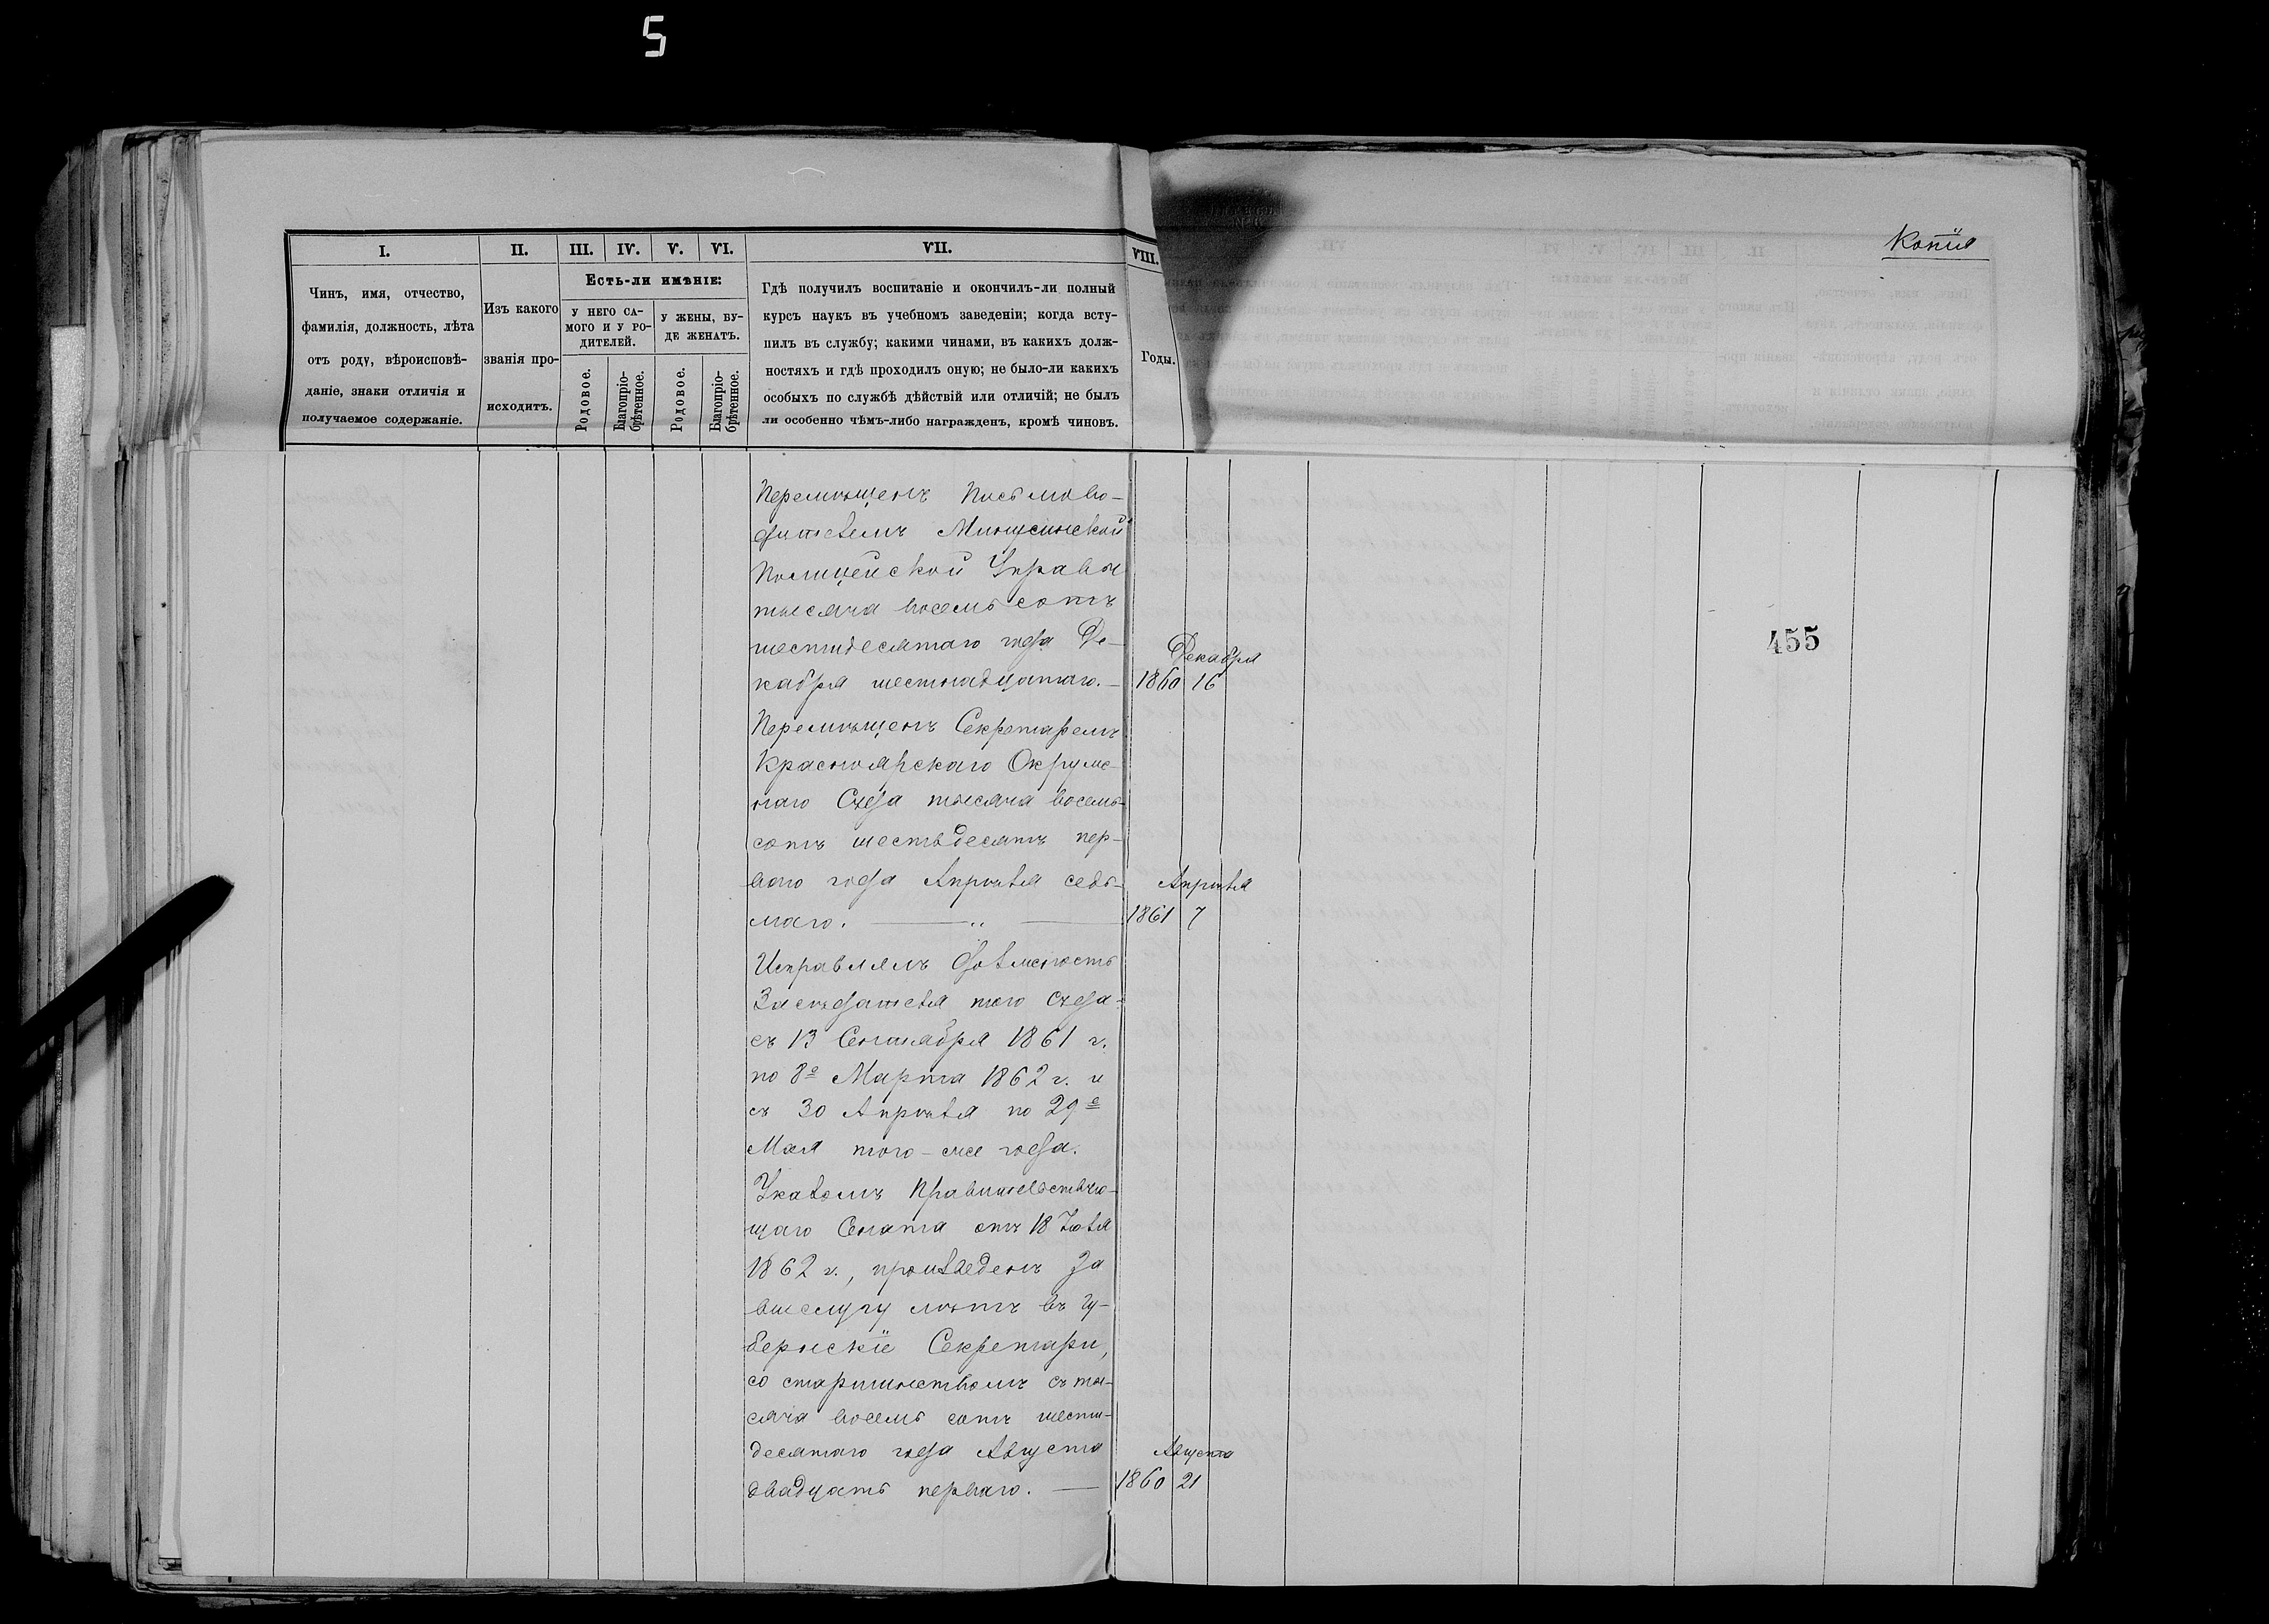 5
Копія
I.
II.
III.
IV.
V.
VI.
VII.
VIII.
Чинъ, имя, отчество,
фамилія, должность, лѣта
отъ роду, вѣроисповѣ-
даніе, знаки отличія и
получаемое содержаніе.
Изъ какого
званія про-
исходитъ.
Есть-ли имѣніе:
У НЕГО СА-
МОГО И У РО-
ДИТЕЛЕЙ.
У ЖЕНЫ, БУ-
ДЕ ЖЕНАТЪ.
Родовое.
Благопріо-
брѣтенное.
Родовое.
Благопріо-
брѣтенное.
Гдѣ получилъ воспитаніе и окончилъ-ли полный
курсъ наукъ въ учебномъ заведеніи; когда всту-
пилъ въ службу; какими чинами, въ какихъ долж-
ностяхъ и гдѣ проходилъ оную; не было-ли какихъ
особыхъ по службѣ дѣйствій или отличій; не былъ
ли особенно чѣмъ-либо награжденъ, кромѣ чиновъ.
Годы.
Перемѣщенъ Письмово-
дителемъ Минусинской
Полицейской Управы
тысяча восемь сотъ
шестидесятаго года Де-
кабря шестнадцатаго. —
Декабря
1860 16
455
Перемѣщенъ Секретаремъ
Красноярскаго Окруж-
наго Суда тысяча восемь
сотъ шестьдесятъ пер-
ваго года Апрѣля седь-
маго. — „ —
Апрѣля
1861 7
Исправлялъ должность
Засѣдателя того Суда
съ 13 Сентября 1861 г.
по 8е Марта 1862 г. и
съ 30 Апрѣля по 29е
Мая того-же года.
Указомъ Правительствую-
щаго Сената отъ 18 Іюля
1862 г., произведенъ за
выслугу лѣтъ въ Гу-
бернскіе Секретари,
со старшинствомъ съ ты-
сяча восемь сотъ шести-
десятаго года Августа
двадцать перваго. —
Августа
1860 21